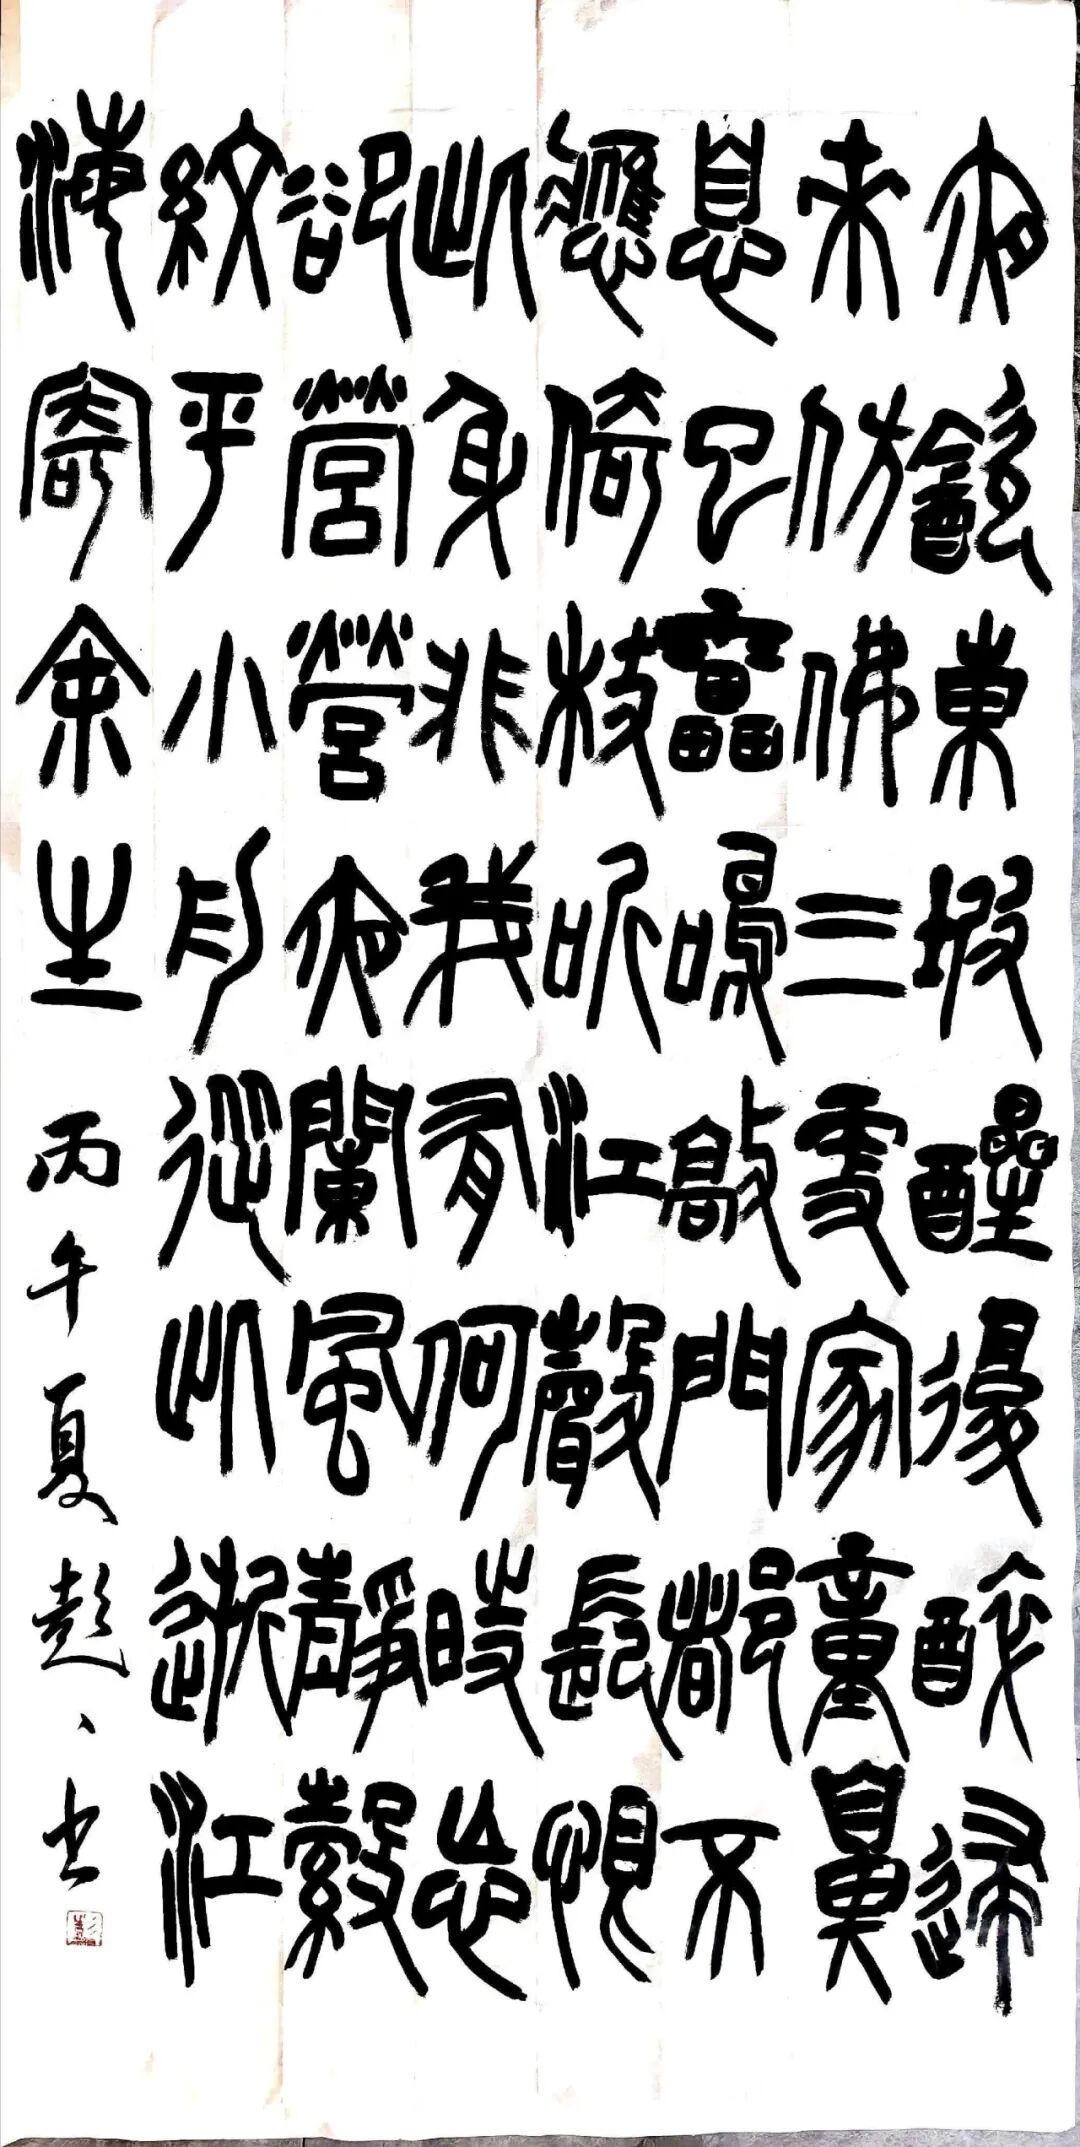 夜飲東坡醒復醉歸
來仿佛三更家童鼻
息已靁鳴敲門都不
應倚杖听江聲長恨
此身非我有何時忘
卻營營夜闌風靜縠
紋平小舟從此逝江
海寄余生
丙午夏彭〻书